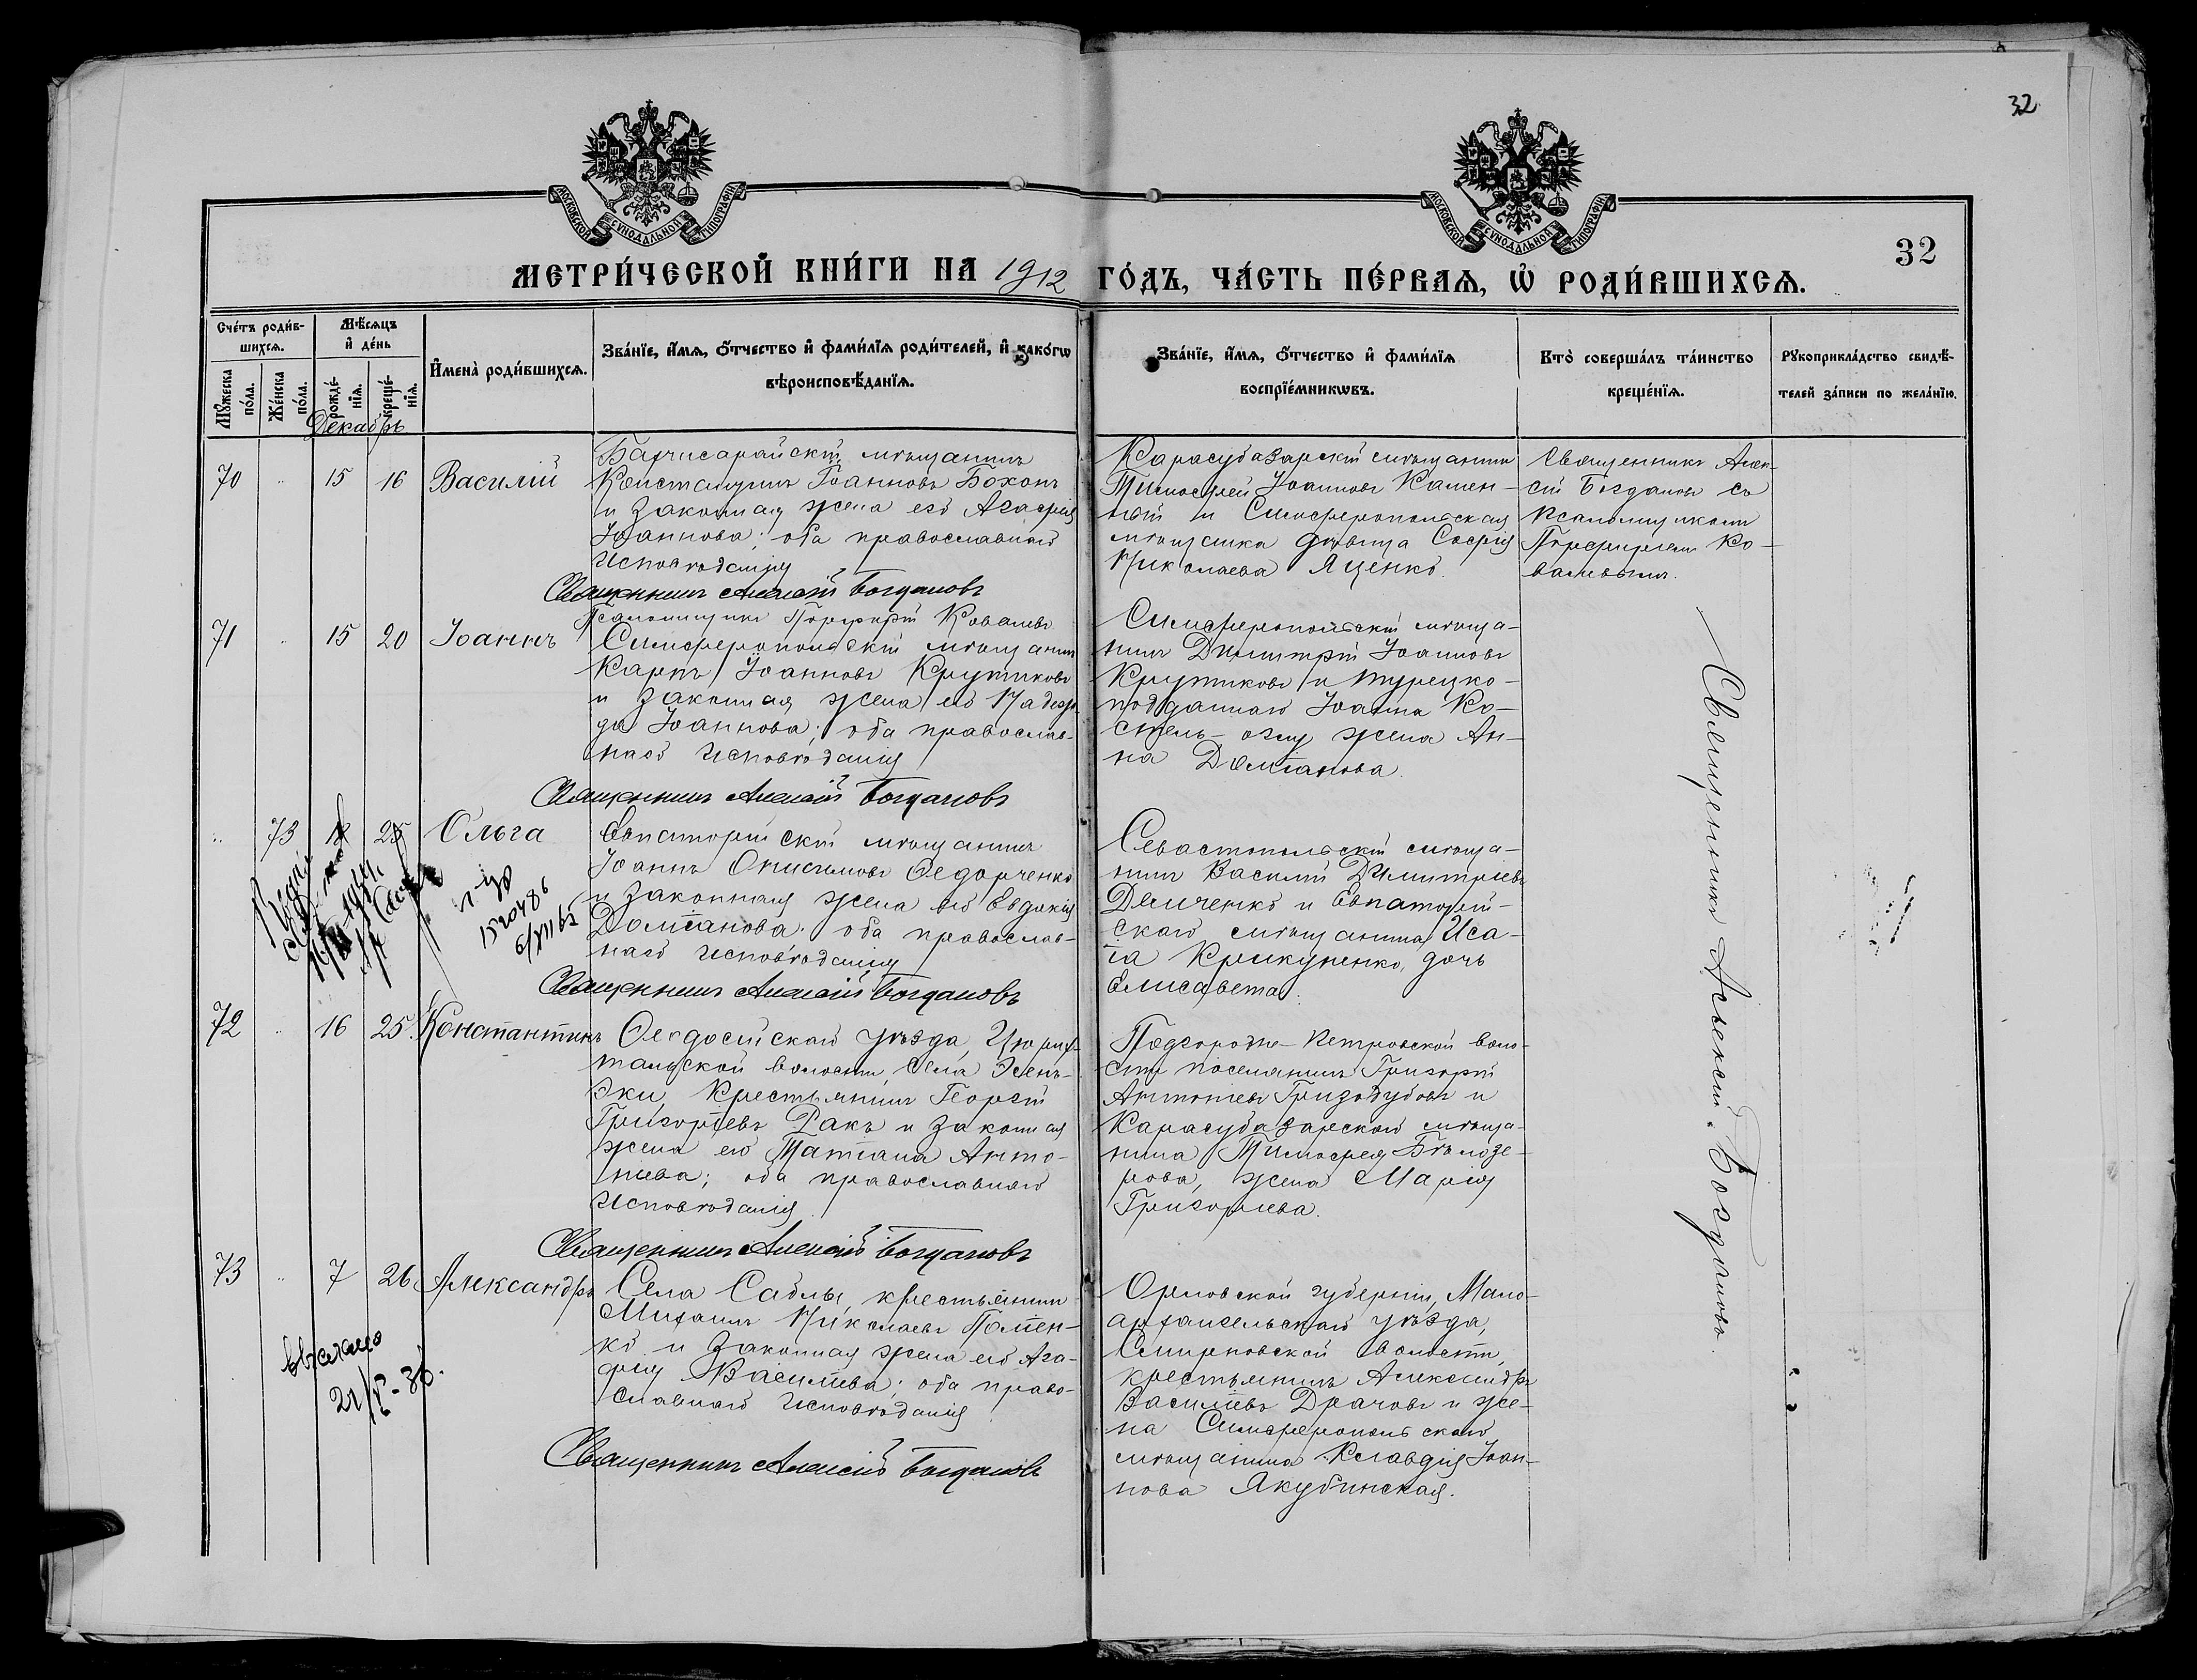 32
МОСКОВСКОЙ СѴНОДАЛЬНОЙ ТИПОГРАФІИ
МОСКОВСКОЙ СѴНОДАЛЬНОЙ ТИПОГРАФІИ
32
МЕТРИ́ЧЕСКОЙ КНИ́ГИ НА 1912 ГО́ДЪ, ЧА́СТЬ ПЕ́РВАѦ, Ѡ҆ РОДИ́ВШИХСѦ.
Сче́тъ роди́в-
шихсѧ.
Мꙋ́жеска по́ла.
Же́нска по́ла.
Мѣ́сѧцъ
и҆ де́нь
рожде́-
нїѧ.
креще́-
нїѧ.
И҆мена̀ роди́вшихсѧ.
Зва́нїе, и҆́мѧ, ѻ҆́тчество и҆ фами́лїѧ роди́телей, и҆ како́гѡ
вѣроисповѣ́данїѧ.
Зва́нїе, и҆́мѧ, ѻ҆́тчество и҆ фами́лїѧ
воспрїе́мникѡвъ.
Кто̀ соверша́лъ та́инство
креще́нїѧ.
Рꙋкоприкла́дство свидѣ́-
телей за́писи по жела́нїю.
Декабрь
70 " 15 16 Василій
Бахчисарайскій мѣщанинъ
Константинъ Іоанновъ Бохонъ
и законная жена его Агафія
Іоаннова; оба православнаго
исповѣданія
Священникъ Алексій Богдановъ
Псаломщикъ Порфирій Ковалевъ
Карасубазарскій мѣщанинъ
Тимоѳей Іоанновъ Камен-
ный и Симферопольская
мѣщанка дѣвица Софія
Николаева Яценко.
Священникъ Алек-
сій Богдановъ съ
псаломщикомъ
Порфиріемъ Ко-
валевымъ.
71 " 15 20 Іоаннъ
Симферопольскій мѣщанинъ
Карпъ Іоанновъ Крутиковъ
и законная жена его Надеж-
да Іоаннова; оба православ-
наго исповѣданія
Священникъ Алексій Богдановъ
Симферопольскій мѣща-
нинъ Димитрій Іоанновъ
Крутиковъ и турецко-
подданнаго Іоанна Ко-
стель-оглу жена Ан-
на Доміанова.
" 73 25 Ольга
Евпаторійскій мѣщанинъ
Іоаннъ Онисимовъ Ѳедорченко
и законная жена его Евдокія
Доміанова; оба православ-
наго исповѣданія
Священникъ Алексій Богдановъ
1520486
6/XII 65
Севастопольскій мѣща-
нинъ Василій Димитріевъ
Демченко и Евпаторій-
скаго мѣщанина Иса-
іа Крикуненко, дочь
Елисавета.
72 " 16 25 Константинъ
Ѳеодосійскаго уѣзда,
волости, села
крестьянинъ Георгій
Григоріевъ Ракъ и законная
жена его Татіана Анто-
ніева; оба православнаго
исповѣданія
Священникъ Алексій Богдановъ
Подгородне-Петровской воло-
сти поселянинъ Григорій
Антоніевъ Гризодубовъ и
Карасубазарскаго мѣща-
нина Тимоѳея Бѣлозе-
рова, жена Марія
Григоріева.
73 " 7 26 Александръ
Села Саблы, крестьянинъ
Михаилъ Николаевъ
и законная жена его Ага-
фія Василіева; оба право-
славнаго исповѣданія
Священникъ Алексій Богдановъ
Орловской губерніи, Мало-
архангельскаго уѣзда,
Смирновской волости,
крестьянинъ Александръ
Василіевъ Драчовъ и же-
на Симферопольскаго
мѣщанина Клавдія Іоан-
нова Якубинская.
Священникъ Алексій Богдановъ